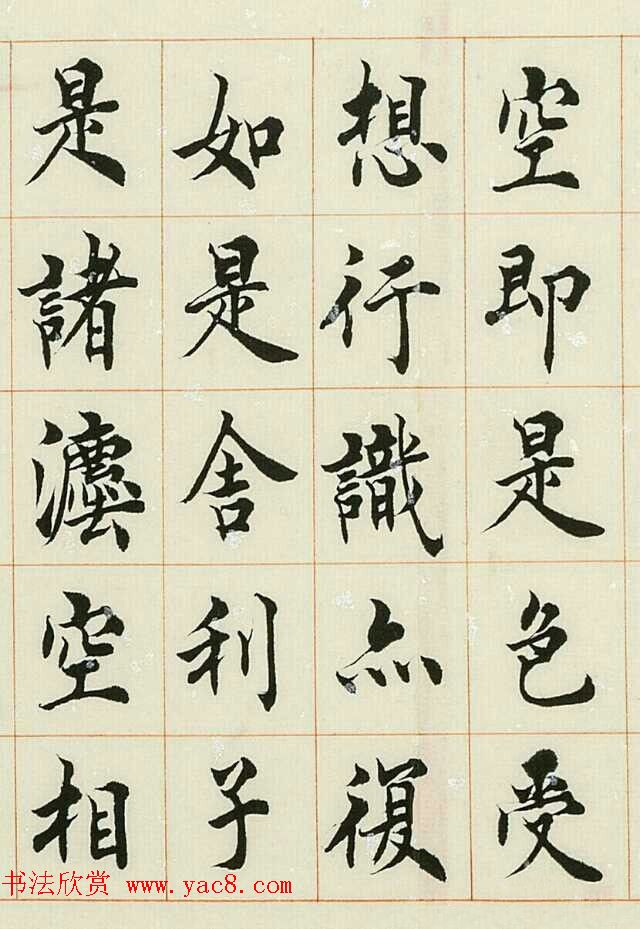 空即是色受
想行識亦復
如是舍利子
是諸灋空相
书法欣赏 www.yac8.com